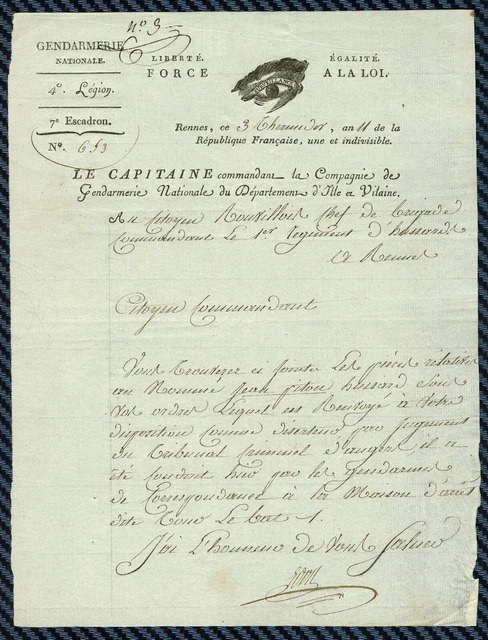 N° 3
GENDARMERIE
NATIONALE.
4e. Légion.
7e Escadron.
N°. 653
LIBERTÉ.
FORCE
SURVEILLANCE
ÉGALITÉ.
A LA LOI.
Rennes, ce 3 Thermidor, an 11 de la
République Française, une et indivisible.
LE CAPITAINE commandant la Compagnie de
Gendarmerie Nationale du Département d'Ille et Vilaine.
Au Citoyen Rouvillois Chef de brigade
Commandant le 1er regiment d'hussards
à Rennes
Citoyen Commandant
Vous trouverez ci jointe les pièces relatives
au Nommé Jean hussard sous
vos ordres lequel est Renvoyé à votre
disposition comme deserteur par jugement
du Tribunal Criminel d'angers il a
été conduit hier par les gendarmes
de Correspondance à la Maison d'arrêt
dite Tour le bat.
J'ai l'honneur de vous saluer